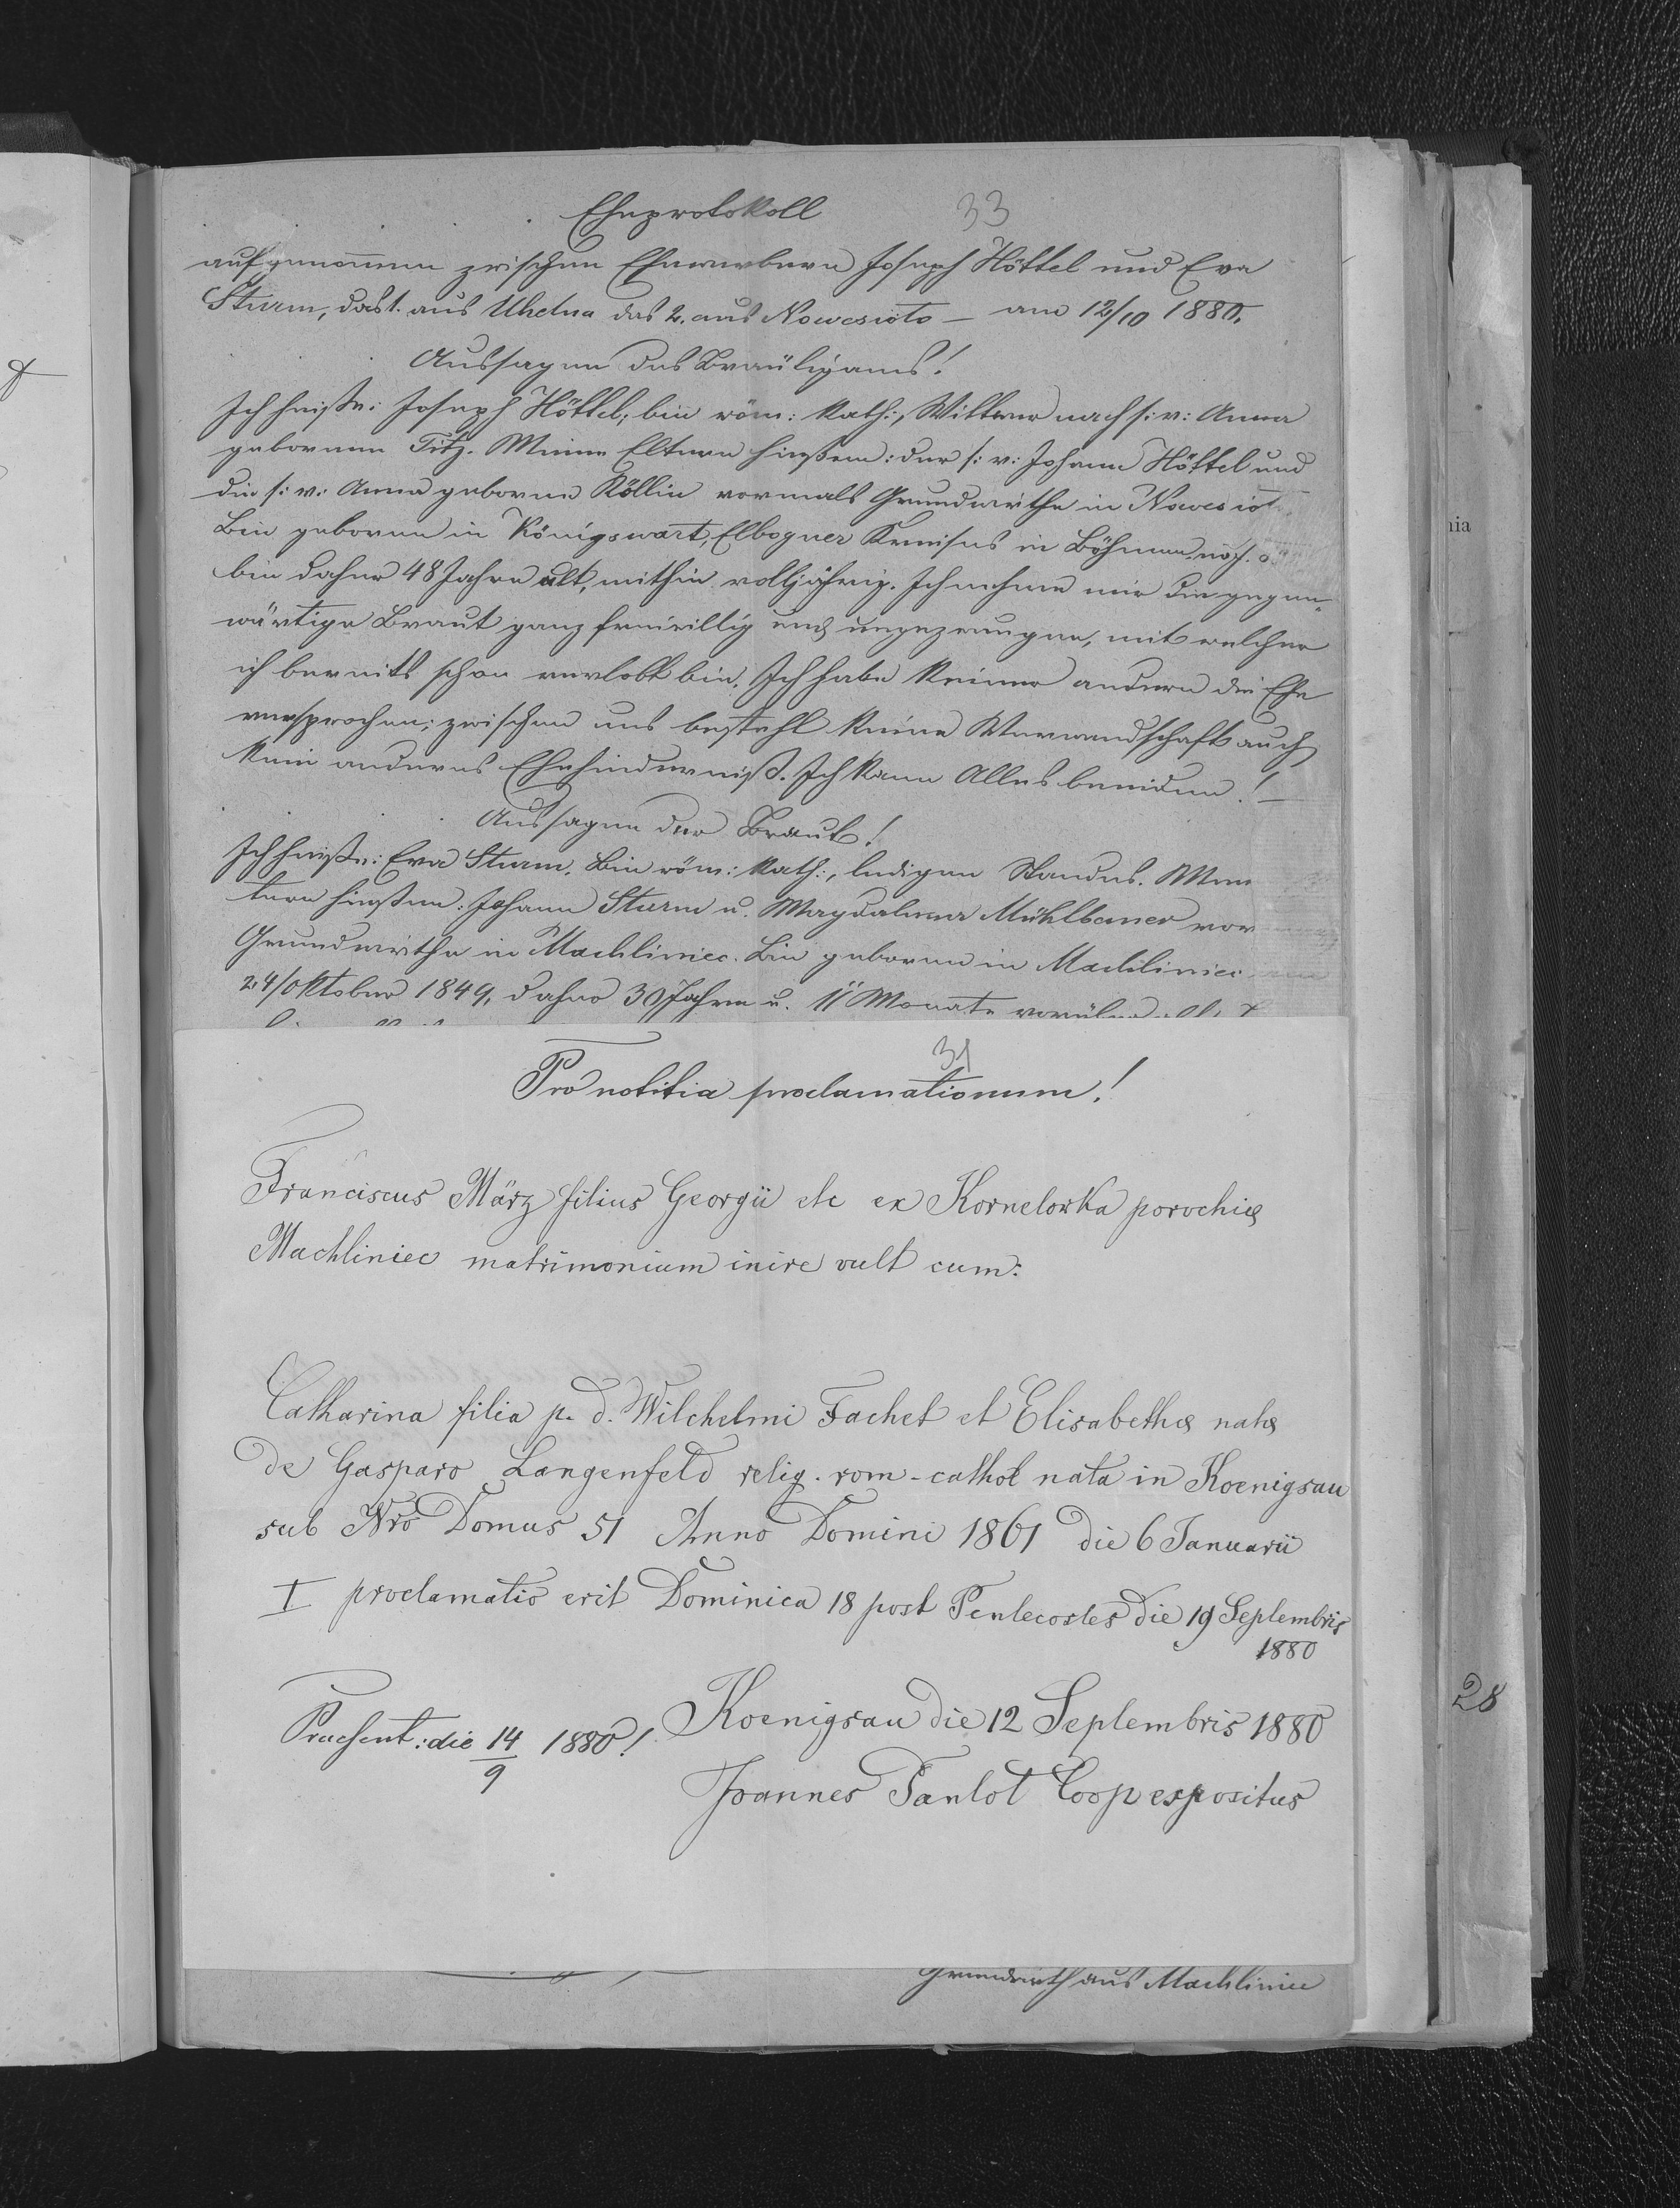 Eheprotokoll 33
aufgenommen zwischen Ehewerbern Joseph Höttel und Eva
Sturm, das 1. aus Uhelna das 2. aus Nowesioto — am 12/10 1880.
Aussagen des Bräutigams!
Ich heiße: Joseph Höttel; bin röm: kath:, Wittwer nach s: v: Anna
gebornen Titz. Meine Eltern hießen: der s: v: Johann Höttel und
die s: v: Anna geborne Köllin vormals Grundwirthe in Nowesiot
Bin geboren in Königswart, Elbogner Kreises in Böhmen
bin daher 48 Jahre alt, mithin volljährig. Ich nehme mir die gegen„
wärtige Braut ganz freiwillig und ungezwungen, mit welcher
ich bereits schon verlobt bin. Ich habe keiner andern die Ehe
versprochen; zwischen uns besteht keine Verwandschaft auch
kein anderes Ehehinderniß. Ich kann Alles beeiden! —
Aussagen der Braut!
Ich heiße: Eva Sturm. Bin röm: kath:, ledigen Standes.
tern hießen: Johann Sturm u. Magdalena Mühlbauer vor
Grundwirthe in Machliniec. Bin geboren in Machliniec
24/Oktober 1849, daher 30 Jahre u. 11 Monate
31
Pro notitia proclamationum!
Franciscus März filius Georgii etc ex Kornelowka porochiæ
Machliniec matrimonium inire vult cum:
Catharina filia p. d. Wilchelmi Fachet et Elisabethæ natæ
de Gasparo Langenfeld relig. rom-cathol nata in Koenigsau
sub Nro Domus 51 Anno Domini 1861 die 6 Januarii
I proclamatio erit Dominica 18 post Pentecostes die 19 Septembris
1880
Koenigsau die 12 Septembris 1880
Praesent: die 14/9 1880!
Joannes Tanlot Coop expositus
Grundwirth aus Machliniec
nia
28